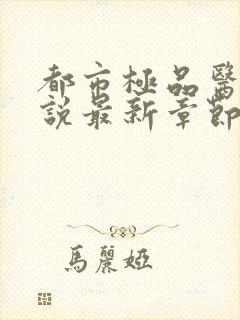 都市極品醫
說最新章節
馬麗婭